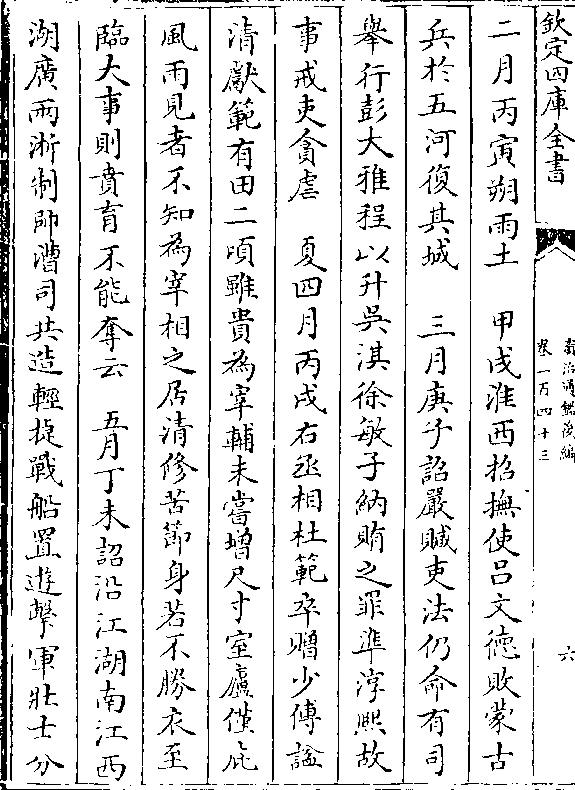 欽定四庫全書
資治通鑑後編
卷一百四十三
六
二月丙寅朔雨土　甲戌淮西招撫使吕文德敗蒙古
兵於五河復其城　三月庚子詔嚴贓吏法仍命有司
舉行彭大雅程以升吳淇徐敏子納賄之罪準淳熙故
事戒吏貪虐　夏四月丙戌右丞相杜範卒贈少傅諡
清獻範有田二頃雖貴為宰輔未嘗增尺寸室廬僅庇
風雨見者不知為宰相之居清修苦節身若不勝衣至
臨大事則賁育不能奪云　五月丁未詔沿江湖南江西
湖廣兩浙制帥漕司共造輕捷戰船置遊擊軍壯士分